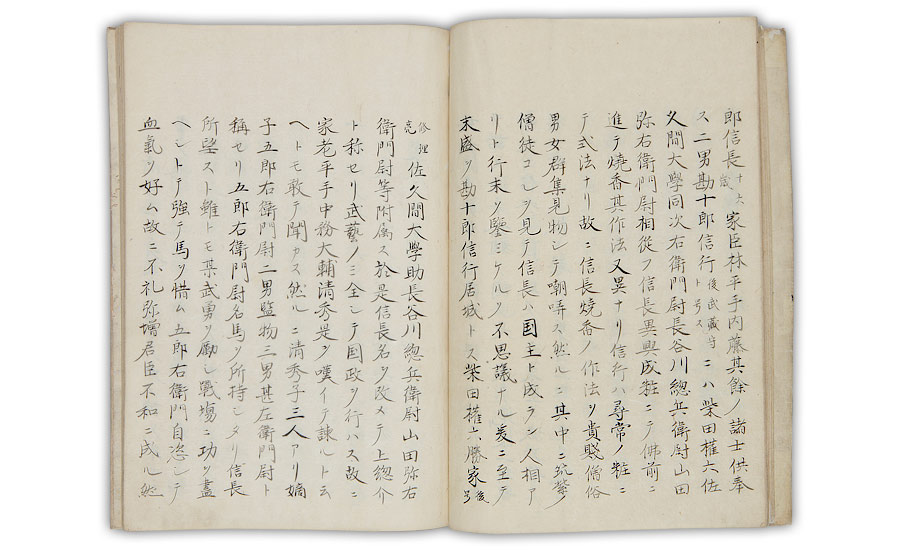 郎信長十六歳家臣林平手内藤其餘ノ諸士供奉
ス二男勘十郎信行後武藏守ト号スニハ柴田權六佐
久間大學同次右衛門尉長谷川惣兵衛尉山田
弥右衛門尉相從フ信長異興成粧ニテ佛前ニ
進テ燒香其作法又異ナリ信行ハ尋常ノ粧ニ
テ式法ナリ故ニ信長燒香ノ作法ヲ貴賤僧俗
男女群集見物シテ嘲哢ス然ルニ其中ニ筑紫ノ
僧徒コレヲ見テ信長ハ国主ト成ラン人相ア
リト行末ヲ鑒ミケルソ不思議ナル爰ニ至テ
末盛ヲ勘十郎信行居城トス柴田權六勝家後号
修理亮佐久間大學助長谷川惣兵衛尉山田弥右
衛門尉等附属ス於是信長名ヲ改メテ上総介
ト称セリ武藝ノミ全シテ国政ヲ行ハス故ニ
家老平手中務大輔清秀是ヲ嘆イテ諌ルト云
ヘトモ敢テ聞カス然ルニ清秀子三人アリ嫡
子五郎右衛門尉二男監物三男甚左衛門尉ト
稱セリ五郎右衛門尉名馬ヲ所持シタリ信長
所望スト雖トモ某武勇ヲ勵シ戰塲ニ功ヲ盡
ヘシトテ強テ馬ヲ惜ム五郎右衛門自恣シテ
血氣ヲ好ム故ニ不礼弥増君臣不和ニ成ル然